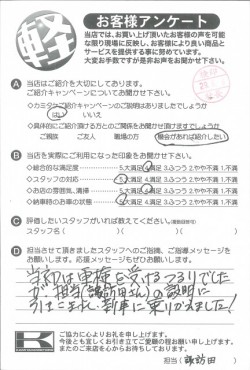 軽
お客様アンケート
当店では、お買い上げ頂いたお客様の声を可能
な限り現場に反映し、お客様により良い商品と
サービスを提供する事に努めています。
大変お手数ですが是非お声をお聞かせ下さい。
A 当店はご紹介を大切にしております。
ご紹介キャンペーンについてお聞かせ下さい。
○カミタ ご紹介キャンペーンのご説明はありましたでしょうか
はい いいえ
○具体的にご紹介頂ける方とのご関係をお聞かせ頂けますでしょうか
ご親族 ご友人 職場の方 機会があれば紹介したい
B 当店を実際にご利用になった印象をお聞かせ下さい。
○総合的な満足度 5.大満足 4.満足 3.ふつう 2.やや不満 1.不満
○スタッフの対応 5.大満足 4.満足 3.ふつう 2.やや不満 1.不満
○お店の雰囲気、清掃 5.大満足 4.満足 3.ふつう 2.やや不満 1.不満
○納車時のお車の状態 5.大満足 4.満足 3.ふつう 2.やや不満 1.不満
C 評価したいスタッフがいれば教えてください。
スタッフ名( )( )
D 担当させて頂きましたスタッフへのご指摘、ご指導メッセージを
お願いします。応援メッセージもぜひお願いします。
当初は車検を受けるつもりでした
が、担当(諏訪田さん)の説明に
引きこまれ、新車に乗りかえました!
K
ご協力に心よりお礼を申し上げます。
今後とも宜しくお引き立てご愛顧の程お願い申し上げます。
またのご来店を心からお待ちしております。
担当( 諏訪田 )